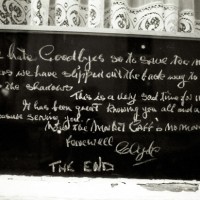 Hate Goodbyes so to save too m
ss we have slipped out the back way to
the shadows
This is a very sad time for
It has been great knowing you all and a
easure serving you.
The Market Café is no more
Farewell Clyde
THE END